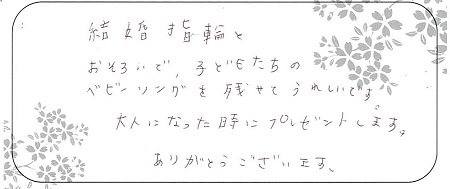 結婚指輪と
おそろいで、子どもたちの
ベビーリングを残せてうれしいです。
大人になった時にプレゼントします。
ありがとうございます。